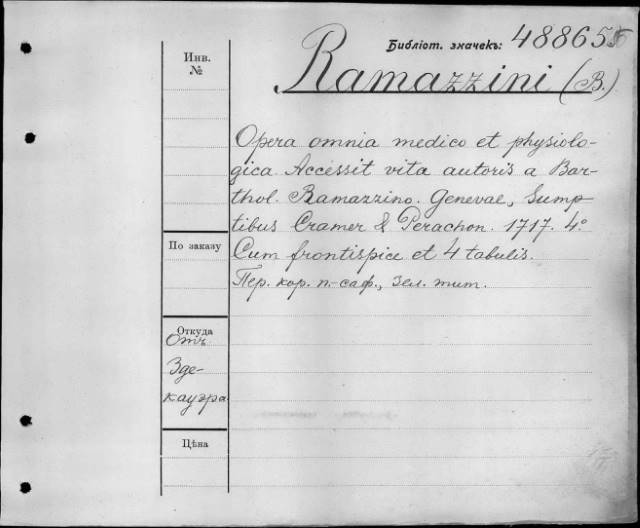 Библіот. значекъ: 48865
Инв. №
Ramazzini (B.)
Opera omnia medico et physiolo-
gica. Accessit vita autoris a Bar-
thol. Ramazzino. Genevae, Sump-
tibus Cramer & Perachon. 1717. 4°
По заказу
Cum frontispice et 4 tabulis.
Пер. кор. п.-саф., зел. тит.
Откуда
Отъ
Зде-
кауэра
Цѣна